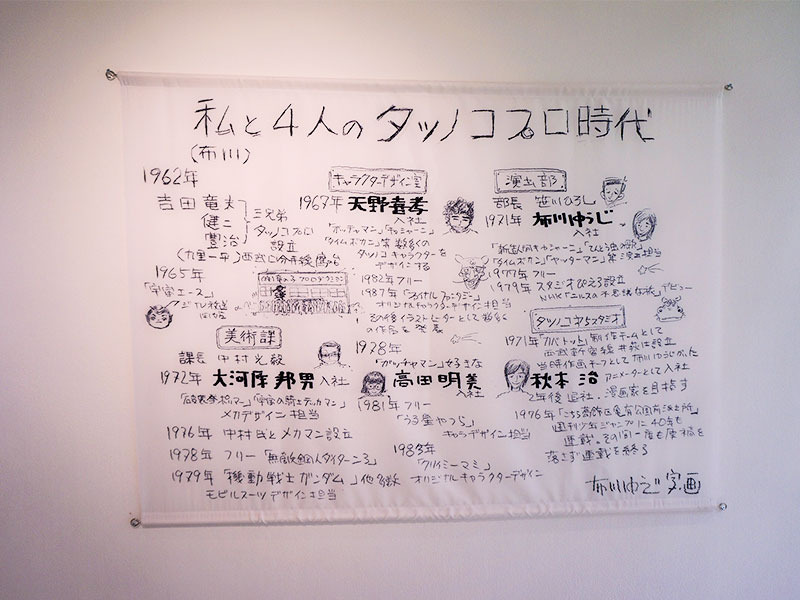 私と4人のタツノコプロ時代
(布川)
1962年
吉田 竜夫
健二
豊治
三兄弟
タツノコプロ
設立
(九里一平)
1965年
「宇宙エース」
フジテレビ放送
開始
キャラクターデザイン室
1967年 天野喜孝
入社
「ガッチャマン」「キャシャーン」
「タイムボカン」等 数多くの
タツノコキャラクターを
デザインする
1982年フリー
1987年「ファイナルファンタジー」
オリジナルキャラクターデザイン担当
その後イラストレーターとして
の作品を発表
演出部
部長 笹川ひろし
1971年 布川ゆうじ
入社
「新造人間キャシャーン」
「タイムボカン」「ヤッターマン」等演出担当
1977年フリー
1979年スタジオぴえろ設立
NHK「ニルスの不思議な旅」デビュー
美術課
課長 中村光毅
1972年 大河原邦男 入社
「破裏拳ポリマー」「宇宙の騎士テッカマン」
メカデザイン担当
1976年 中村氏とメカマン設立
1978年 フリー「無敵鋼人ダイターン3」
1979年「機動戦士ガンダム」他多数
モビルスーツデザイン担当
1978年
「ガッチャマン」好きな
高田明美
入社
1981年フリー
「うる星やつら」
キャラデザイン担当
1983年
「クリィミーマミ」
オリジナルキャラクターデザイン
1971年「カバトット」制作チームとして
当時作画チーフとして布川ゆうじがいた
秋本 治
アニメーターとして入社
2年後退社、漫画家を目指す
1976年「こちら葛飾区亀有公園前派出所」
週刊少年ジャンプに40年も
連載。その間一度も原稿を
落さず連載を終る
布川ゆうじ 字・画